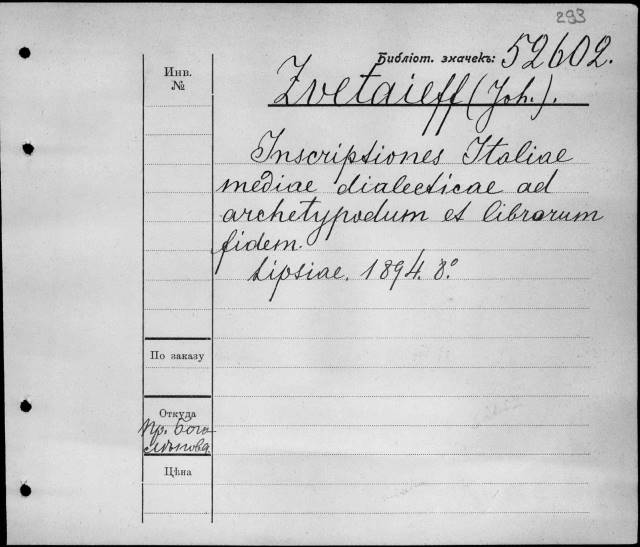 293
Библіот. значекъ: 52602.
Инв.
№
Zvetaieff (Joh.).
Inscriptiones Italiae
mediae dialecticae ad
archetypodum et librorum
fidem.
Lipsiae. 1894. 8°.
По заказу
Откуда
Пр. Бого
словова
Цѣна